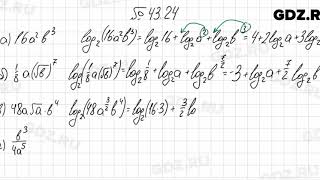 № 43.24
GDZ.RU
а) 16a²b³ log₂(16a²b³) = log₂16 + log₂a² + log₂b³ = 4 + 2log₂a + 3log₂
б) 1/8 a(√b)⁷ log₂(1/8 a(√b)⁷) = log₂ 1/8 + log₂a + log₂b^(7/2) = -3 + log₂a + 7/2 log₂b
в) 48a√a·b⁴ log₂(48a^(3/2)b⁴) = log₂(16·3) + 3/2 lo
b³/4a⁵